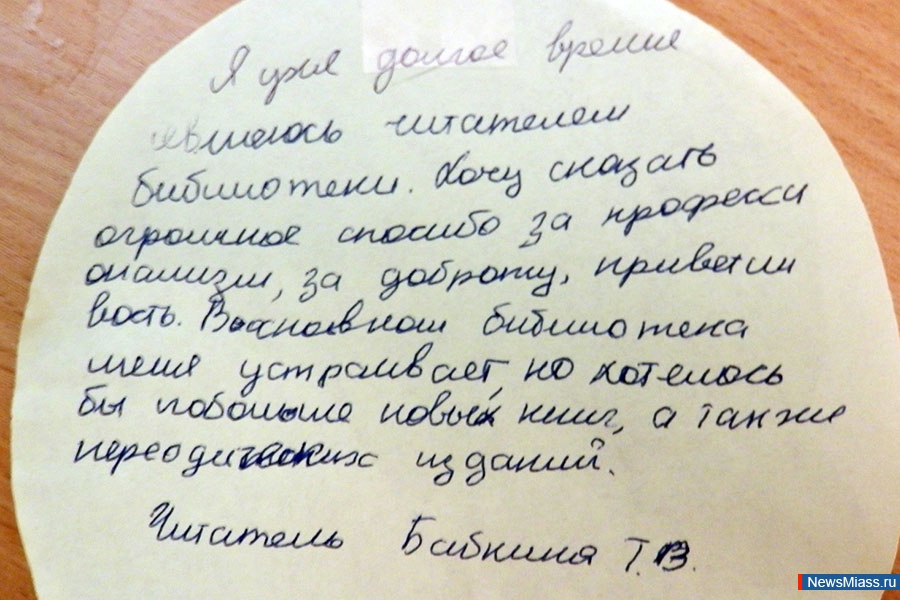 Я уже долгое время
являюсь читателем
библиотеки. Хочу сказать
огромное спасибо за професси
онализм, за доброту, приветли
вость. В основном библиотека
меня устраивает, но хотелось
бы побольше новых книг, а также
переодических изданий.
Читатель Бабкина Т.В.
NewsMiass.ru